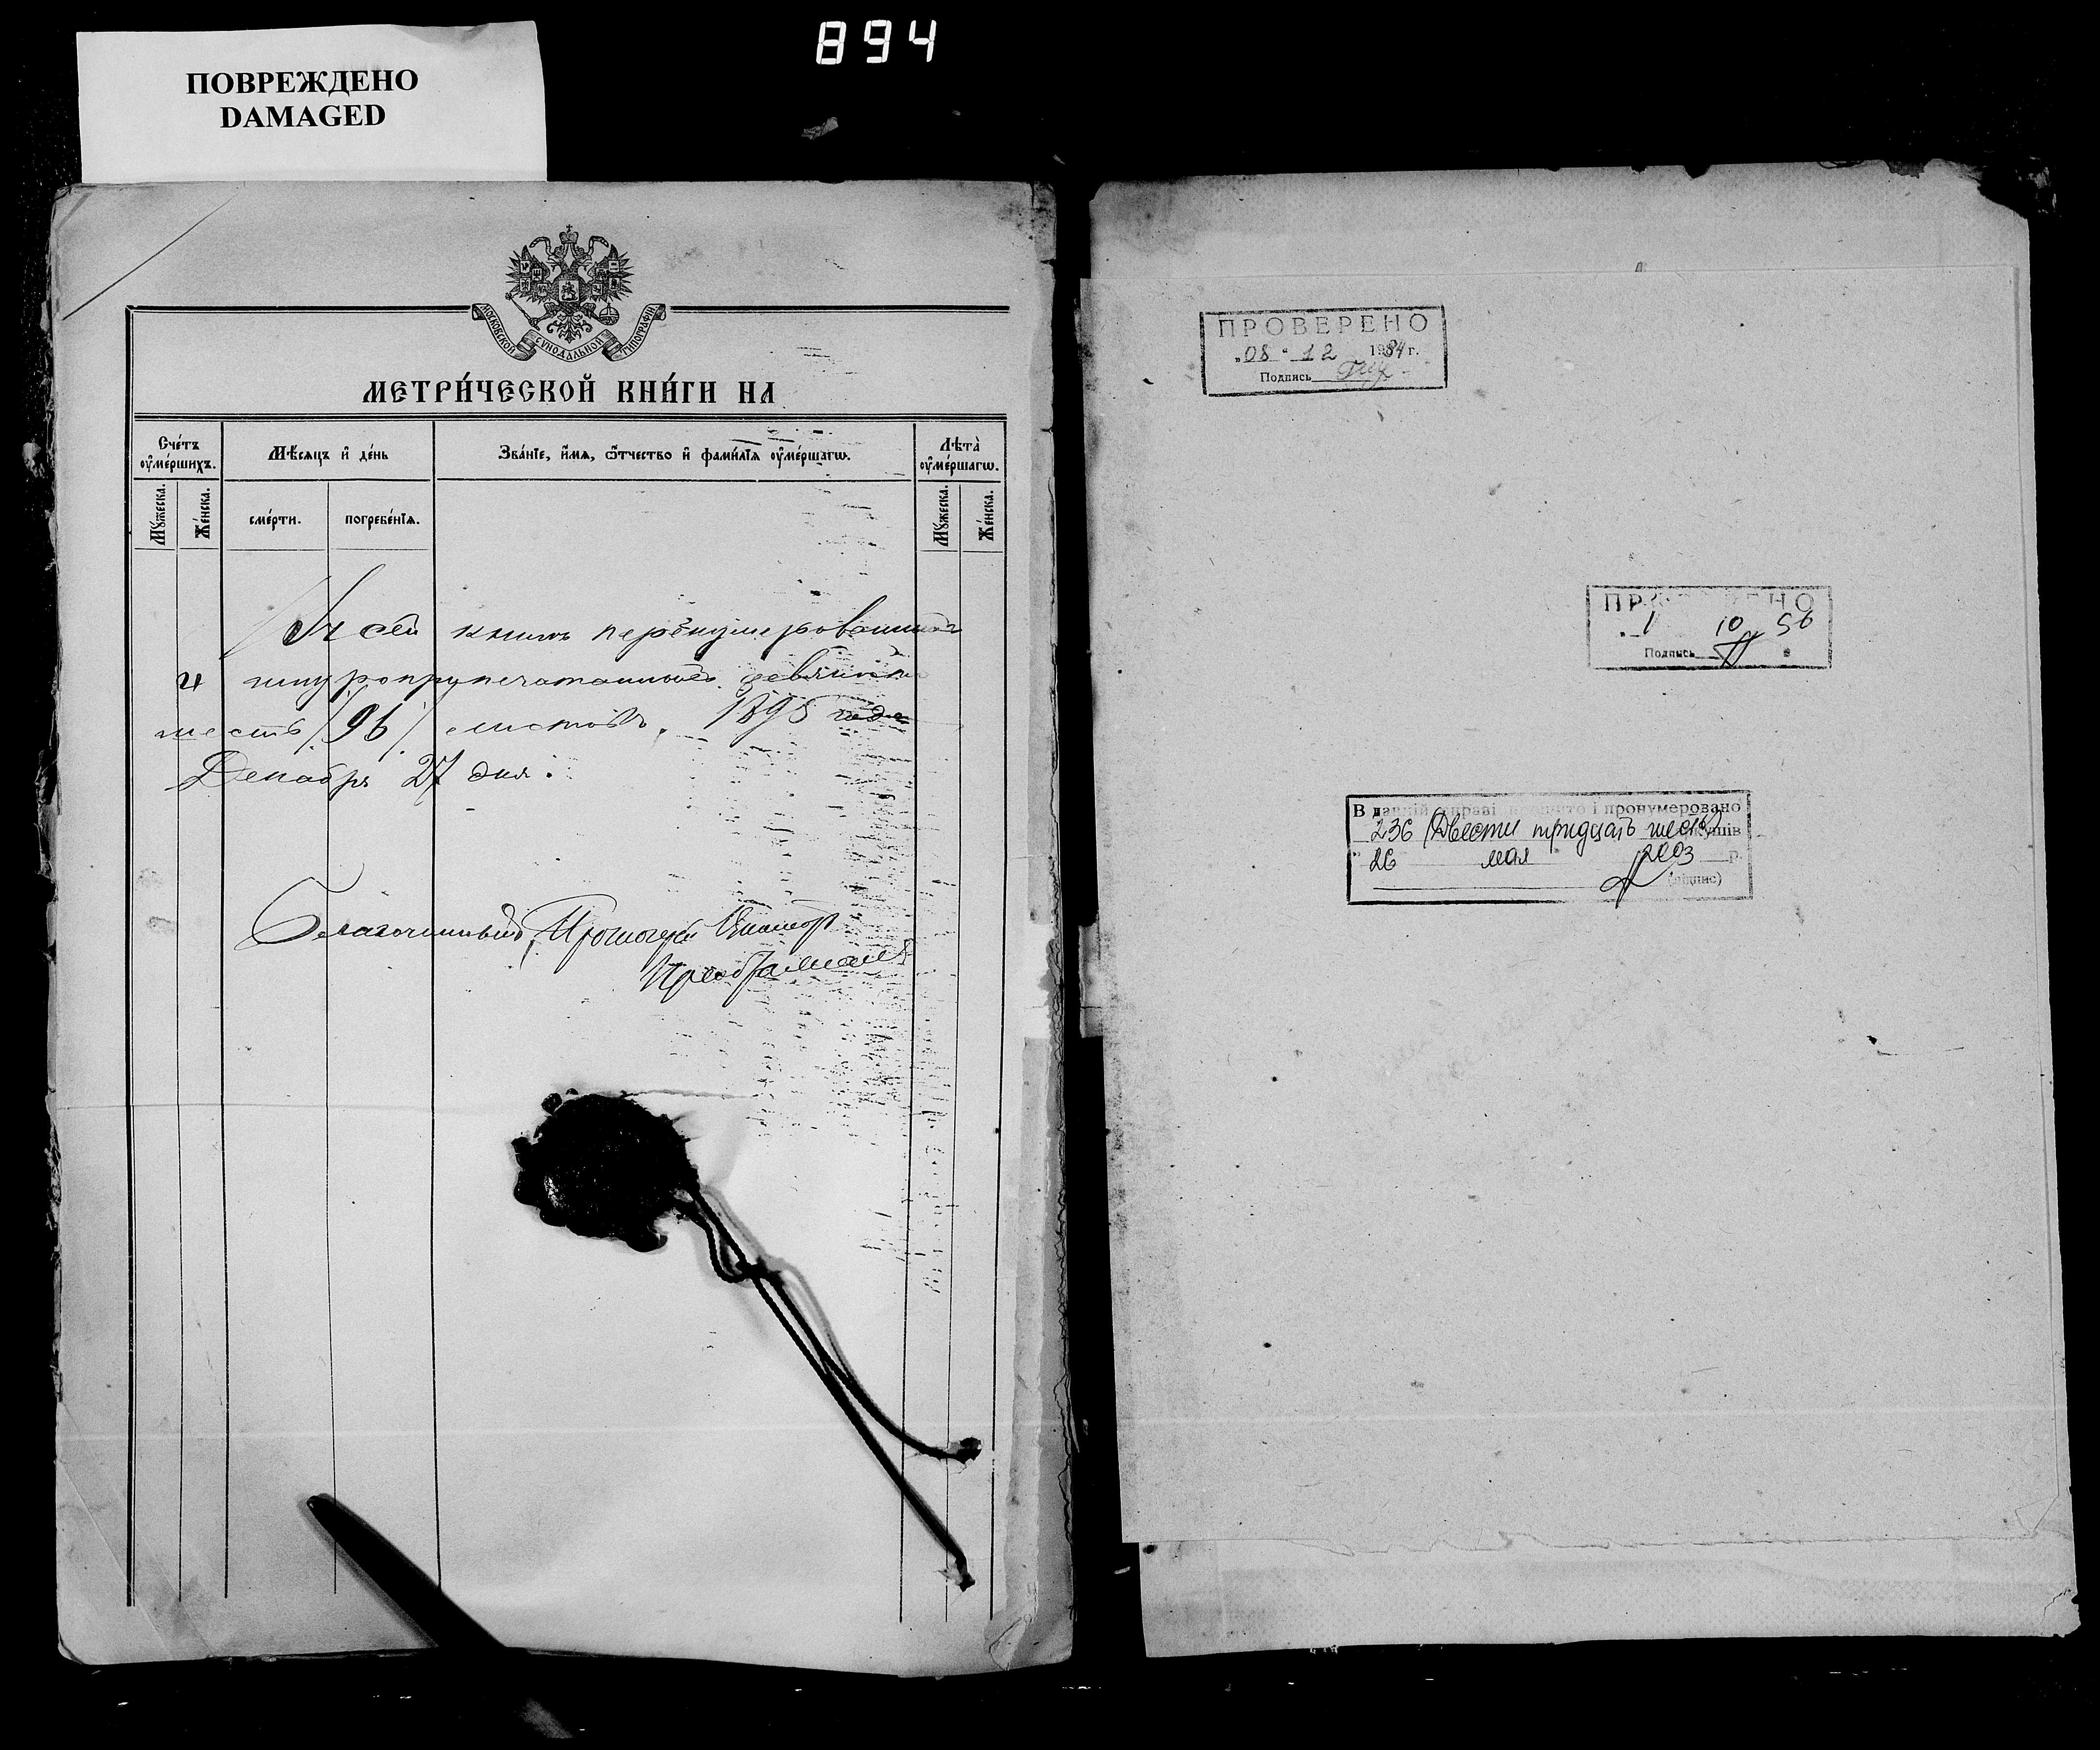 894
ПОВРЕЖДЕНО
DAMAGED
МОСКОВСКОЙ СѴНОДАЛЬНОЙ ТИПОГРАФІИ
МЕТРИ́ЧЕСКОЙ КНИ́ГИ НА
Сче́тъ оу҆ме́ршихъ.
Мѣ́сяцъ и҆ де́нь
Зва́нїе, и҆́мя, ѻ҆́тчество и҆ фами́лїя оу҆ме́ршагѡ.
Лѣта̀ оу҆ме́ршагѡ.
Мꙋ́жеска.
Же́нска.
сме́рти.
погребе́нїя.
Мꙋ́жеска.
Же́нска.
сей книгѣ перенумерованныхъ
и шнуроприпечатанныхъ девяносто
шесть /96/ листовъ. 1895 года
Декабря 27 дня.
Благочинный, Протоіерей
Преображенскій
ПРОВЕРЕНО
„08“ 12 1984 г.
Подпись
ПРОВЕРЕНО
1 10 56
Подпись
В данній справі прошито і пронумеровано
236 (Двести тридцать шесть) аркушів
" 26 " мая 2003 р.
(підпис)